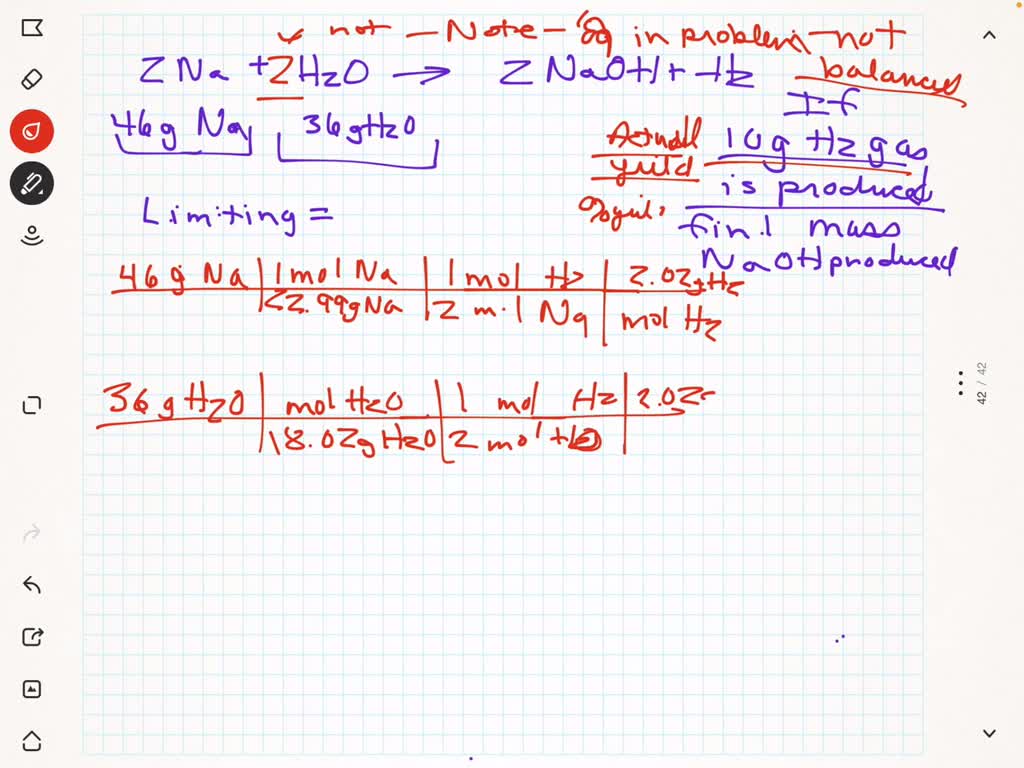 not - Note - Eq in problem not
balanced
2 Na + 2 H2O → 2 NaOH + H2
46g Na 36g H2O
If
10g H2 gas
is produced
final mass
NaOH produced
Actual
yield
% yield
Limiting =
46 g Na | 1 mol Na | 1 mol H2 | 2.02g H2
22.99g Na | 2 mol Na | mol H2
36 g H2O | mol H2O | 1 mol H2 | 2.02
18.02g H2O | 2 mol H2O
42 / 42